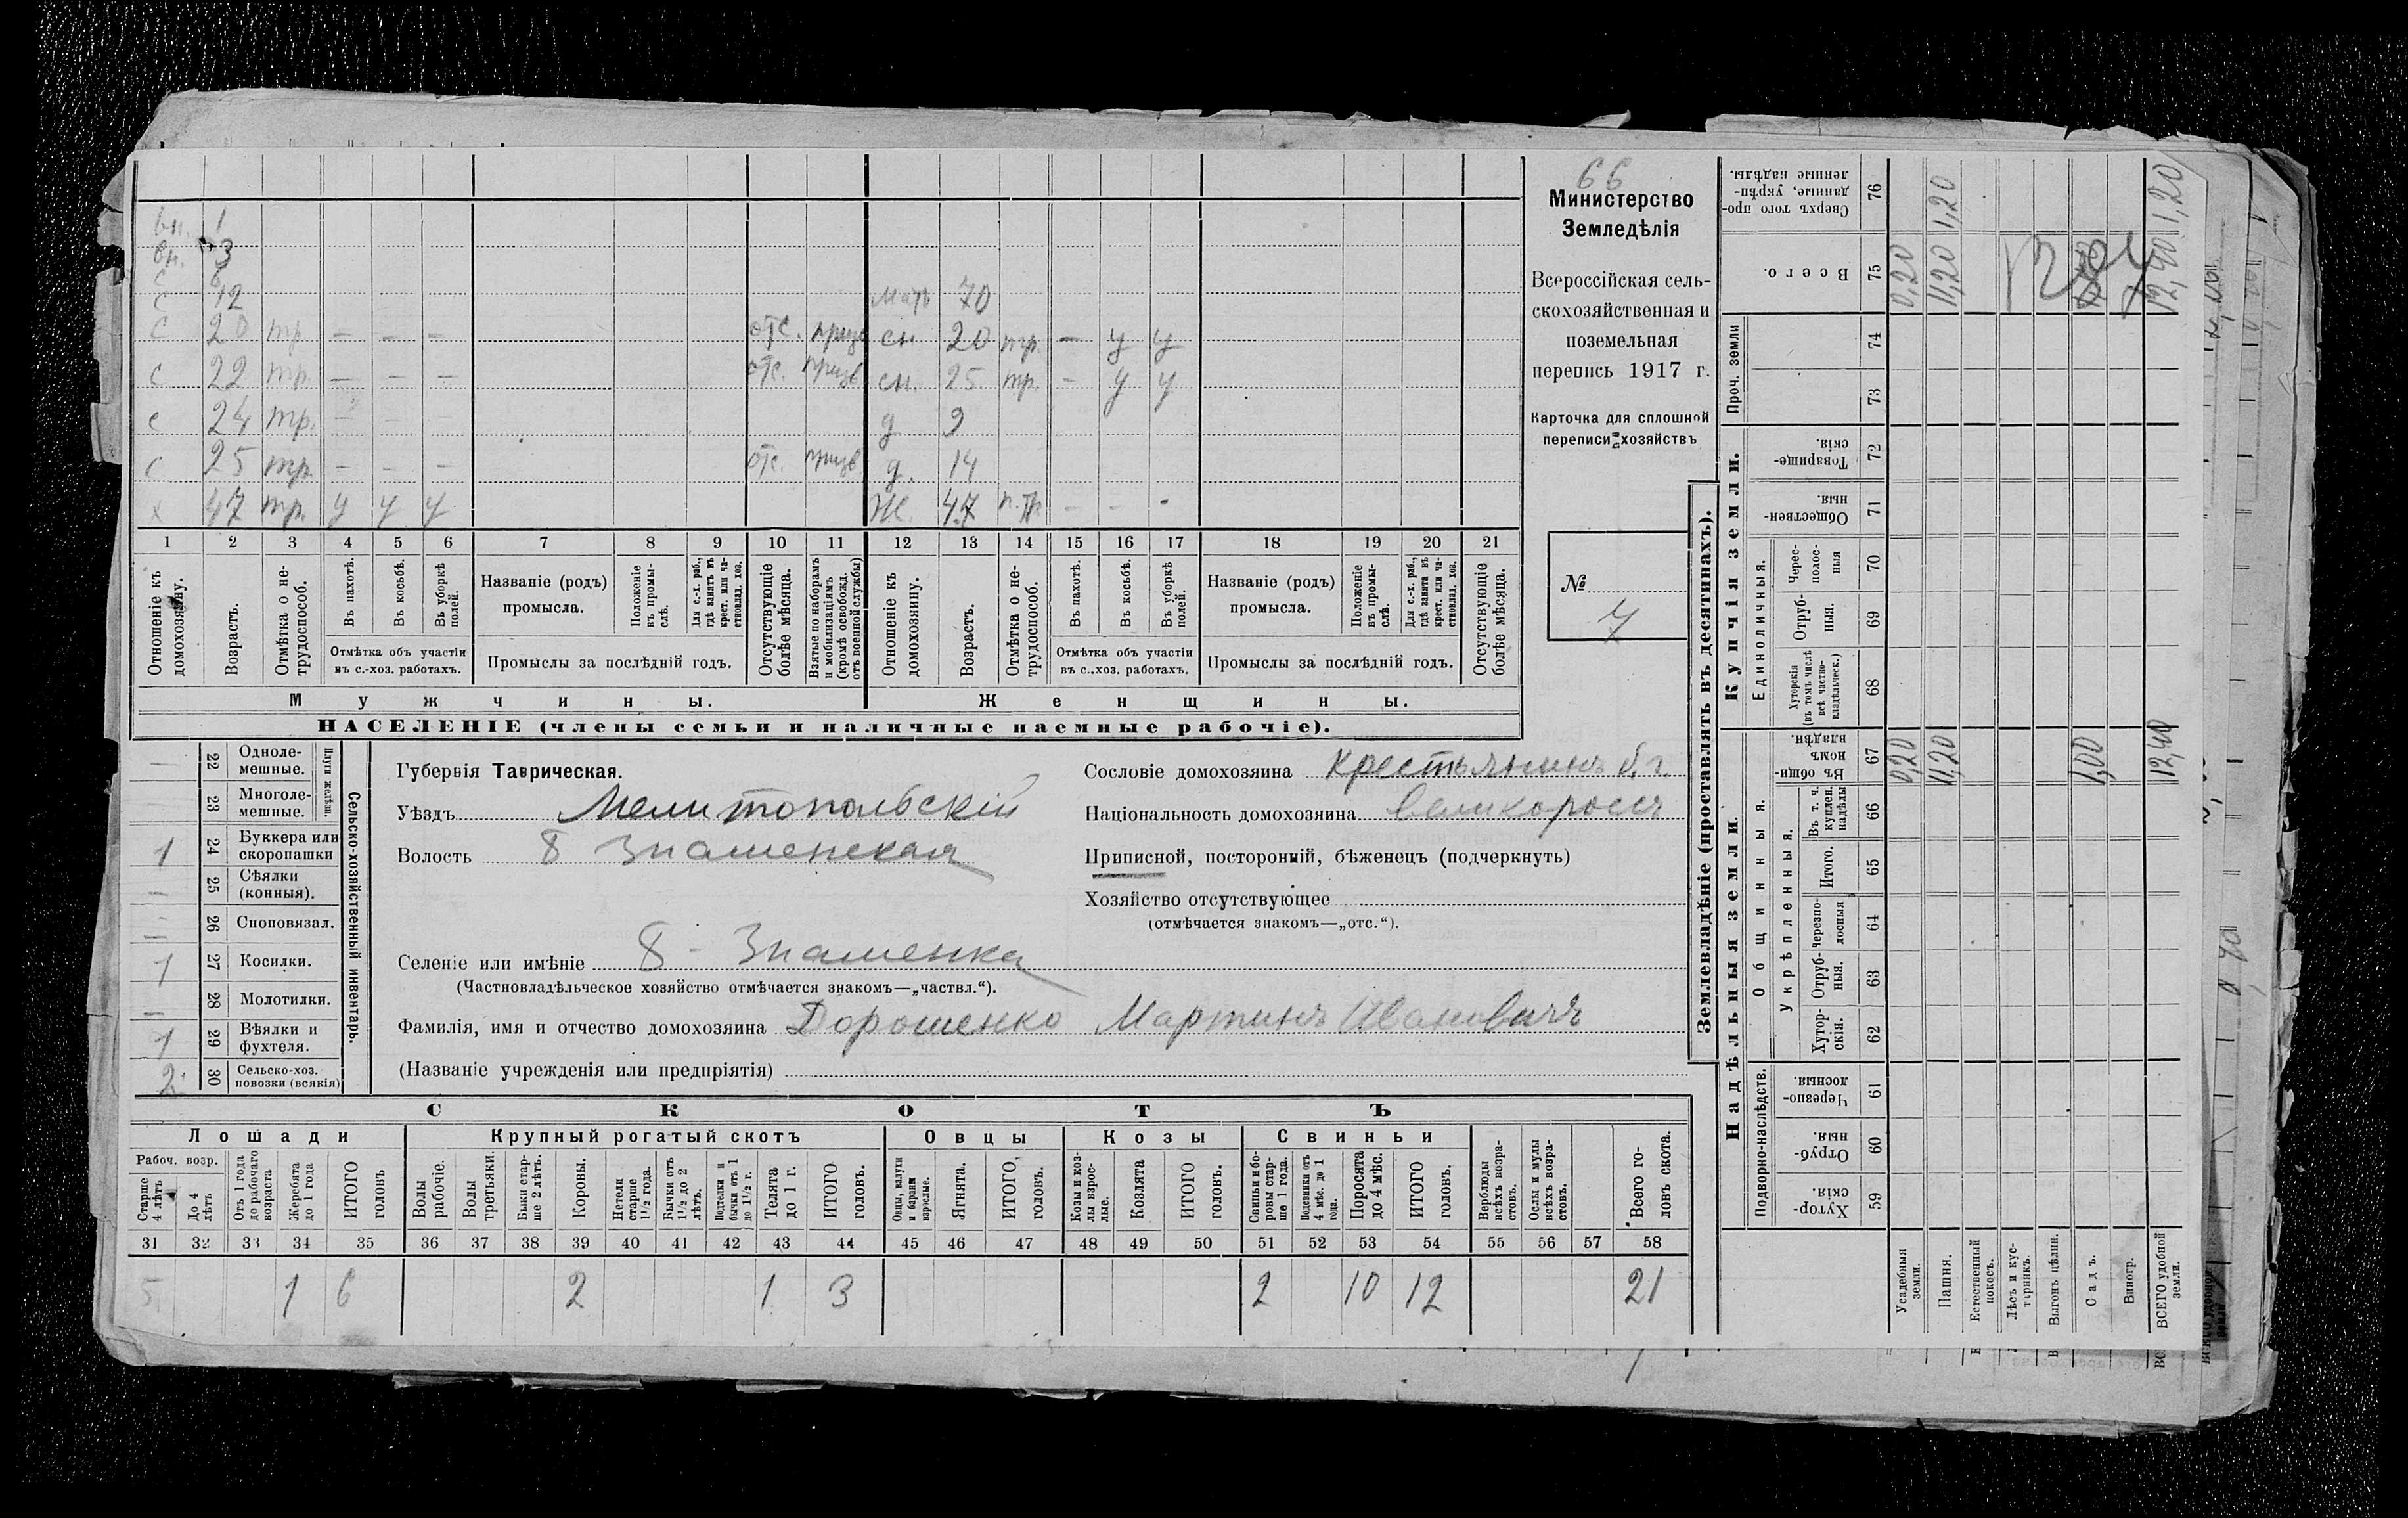 66
Министерство
Земледѣлія
Всероссійская сель-
скохозяйственная и
поземельная
перепись 1917 г.
Карточка для сплошной
переписи хозяйствъ
№
7
вн. 1
вн. 3
с 6
с 12 мать 70
с 20 тр. — — — отс. призв сн 20 тр. — у у
с 22 тр. — — — отс. призв сн. 25 тр. — у у
с 24 тр. — — д 9
с 25 тр. — — — отс. призв д. 14
х 47 тр. у у у Ж. 47 п.тр — — -
1 2 3 4 5 6 7 8 9 10 11 12 13 14 15 16 17 18 19 20 21
Отношеніе къ домохозяину.
Возрастъ.
Отмѣтка о не-трудоспособ.
Въ пахотѣ.
Въ косьбѣ.
Въ уборкѣ полей.
Отмѣтка объ участіи въ с.-хоз. работахъ.
Названіе (родъ) промысла.
Положеніе въ промы-слѣ.
Для с.-х. раб., гдѣ занятъ въ крест. или ча-стновлад. хоз.
Промыслы за послѣдній годъ.
Отсутствующіе болѣе мѣсяца.
Взятые по наборамъ и мобилизаціямъ (кромѣ освобожд. отъ военной службы)
Отношеніе къ домохозяину.
Возрастъ.
Отмѣтка о не-трудоспособ.
Въ пахотѣ.
Въ косьбѣ.
Въ уборкѣ полей.
Отмѣтка объ участіи въ с..хоз. работахъ.
Названіе (родъ) промысла.
Положеніе въ промы-слѣ.
Для с.-х. раб., гдѣ занята въ крест. или ча-стновлад. хоз.
Промыслы за послѣдній годъ.
Отсутствующіе болѣе мѣсяца.
Мужчины.
Женщины.
НАСЕЛЕНІЕ (члены семьи и наличные наемные рабочіе).
— 22 Одноле-мешные.
23 Многоле-мешные.
Плуги желѣзн.
1 24 Буккера или скоропашки
— 25 Сѣялки (конныя).
— 26 Сноповязал.
1 27 Косилки.
— 28 Молотилки.
1 29 Вѣялки и фухтеля.
2 30 Сельско-хоз. повозки (всякія)
Сельско-хозяйственный инвентарь.
Губернія Таврическая.
Уѣздъ Мелитопольскій
Волость Б Знаменская
Селеніе или имѣніе Б - Знаменка
(Частновладѣльческое хозяйство отмѣчается знакомъ—„частвл.“).
Фамилія, имя и отчество домохозяина Дорошенко Мартинъ Ивановичъ
(Названіе учрежденія или предпріятія)
Сословіе домохозяина Крестьянинъ б.г.
Національность домохозяина великороссъ
Приписной, посторонній, бѣженецъ (подчеркнуть)
Хозяйство отсутствующее
(отмѣчается знакомъ—„отс.“).
СКОТЪ
Лошади
Крупный рогатый скотъ
Овцы
Козы
Свиньи
Рабоч. возр.
Старше 4 лѣтъ
До 4 лѣтъ
Отъ 1 года до рабочаго возраста
Жеребята до 1 года
ИТОГО головъ
Волы рабочіе.
Волы третьяки.
Быки стар-ше 2 лѣтъ.
Коровы.
Нетели старше 1½ года.
Бычки отъ 1½ до 2 лѣтъ.
Подтелки и бычки отъ 1 до 1½ г.
Телята до 1 г.
ИТОГО головъ.
Овцы, валухи и бараны взрослые.
Ягнята.
ИТОГО, головъ.
Козы и коз-лы взрос-лые.
Козлята
ИТОГО головъ.
Свиньи и бо-ровы стар-ше 1 года.
Подсвинки отъ 4 мѣс. до 1 года.
Поросята до 4 мѣс.
ИТОГО головъ.
Верблюды всѣхъ возра-стовъ.
Ослы и мулы всѣхъ возра-стовъ.
Всего го-ловъ скота.
31 32 33 34 35 36 37 38 39 40 41 42 43 44 45 46 47 48 49 50 51 52 53 54 55 56 57 58
5 1 6 2 1 3 2 10 12 21
Землевладѣніе (проставлять въ десятинахъ).
Надѣльныя земли.
Купчія земли.
Проч. земли
Подворно-наслѣдств.
Общинныя.
Укрѣпленныя.
Единоличныя.
Хутор-скія. 59
Отруб-ныя. 60
Черезпо-лосныя. 61
Хутор-скія. 62
Отруб-ныя. 63
Черезпо-лосныя 64
Итого. 65
Въ т. ч. куплен. надѣлы 66
Въ общи-номъ владѣн. 67
Хуторскія (въ томъ числѣ всѣ частно-владѣльческ.) 68
Отруб-ныя. 69
Черес-полос-ныя 70
Обществен-ныя. 71
Товарище-скія. 72
73
74
Всего. 75
Сверхъ того про-данные, укрѣп-ленные надѣлы. 76
Усадебныя земли. 0,20 0,20
Пашня. 11,20 11,20 1,20
Естественный покосъ.
Лѣсъ и кус-тарникъ.
Выгонъ цѣлин.
Садъ. 1,00
Виногр.
ВСЕГО удобной земли. 12,40 12,40 1,20